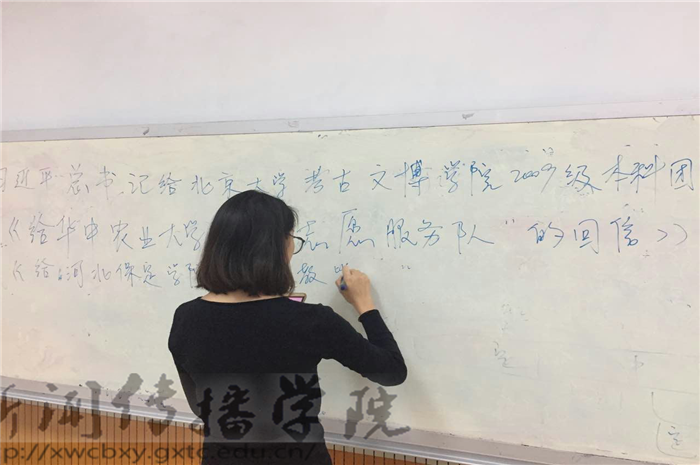 习近平总书记给北京大学考古文博学院2009级本科团
《给华中农业大学 志愿服务队"的回信》
《给河北保定学院 教
新闻传播学院
p://xwcbxy.gxtc.edu.cn/